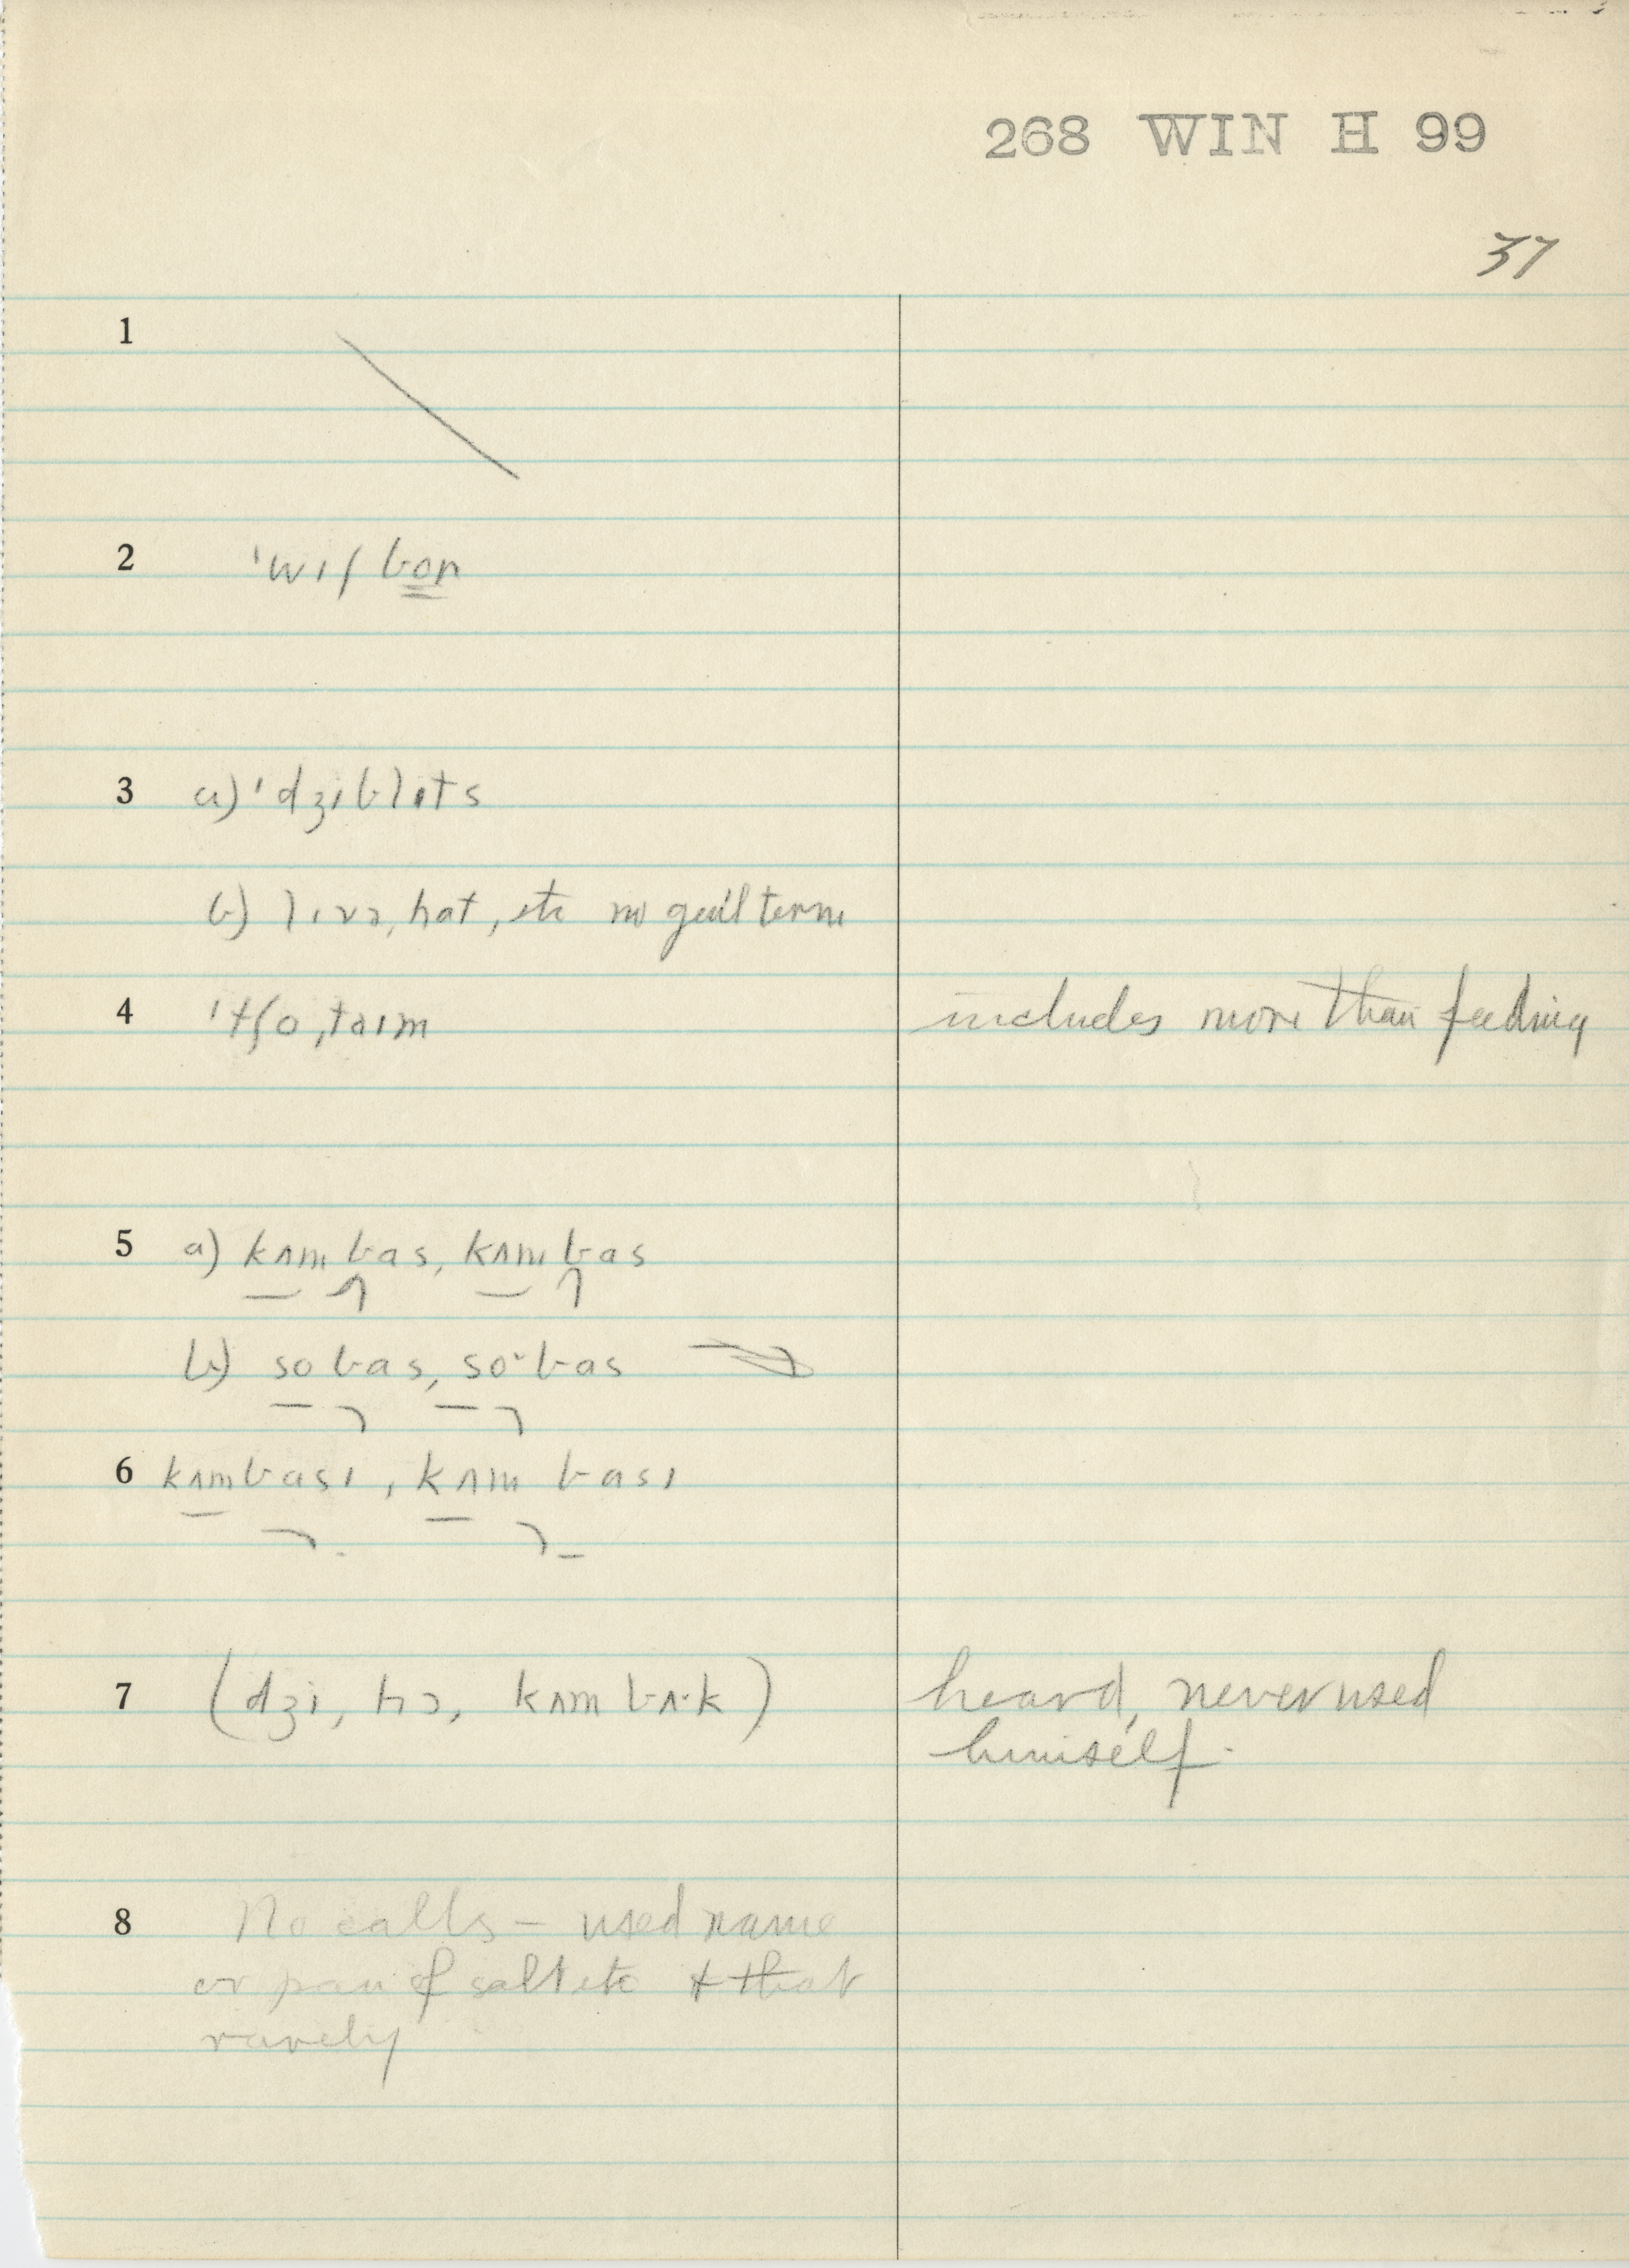 268 WIN H 99
37
1
2 ˈwɪʃbon
3 a) ˈdʒɪblɪts
b) lɪvɚ, hat, etc no gen'l term
4 ˈtʃoˌtaɪm includes more than feeding
5 a) kʌm bas, kʌm bas
b) so bas, so· bas
6 kʌm basɪ, kʌm basɪ
7 (dʒi, hɔ, kʌm bʌ·k) heard, never used
himself.
8 No calls – used name
or pan of salt etc & that
rarely